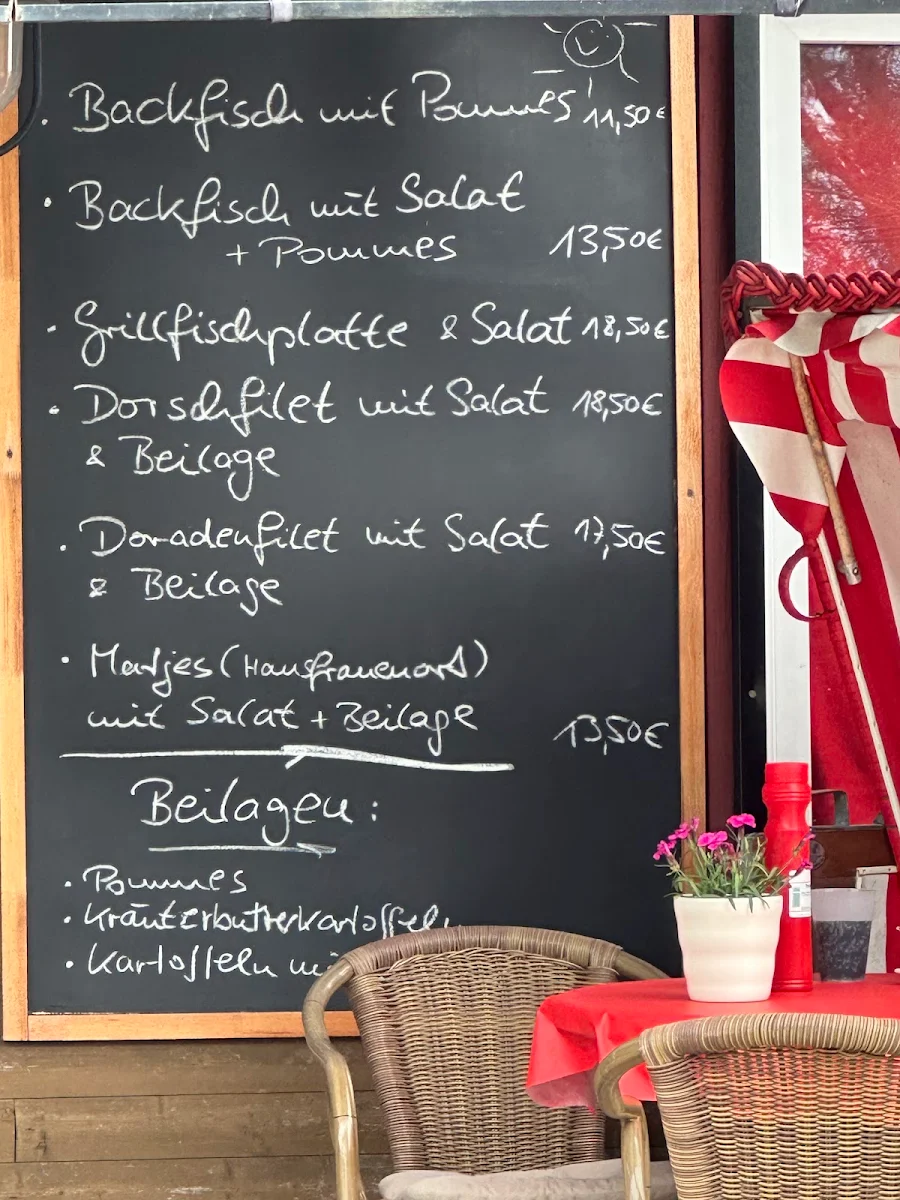 · Backfisch mit Pommes 11,50€
· Backfisch mit Salat
+ Pommes 13,50€
· Grillfischplatte & Salat 18,50€
· Dorschfilet mit Salat 18,50€
& Beilage
· Doradenfilet mit Salat 17,50€
& Beilage
· Matjes (Hausfrauenart)
mit Salat + Beilage 13,50€
Beilagen:
· Pommes
· Kräuterbutterkartoffeln
· Kartoffeln